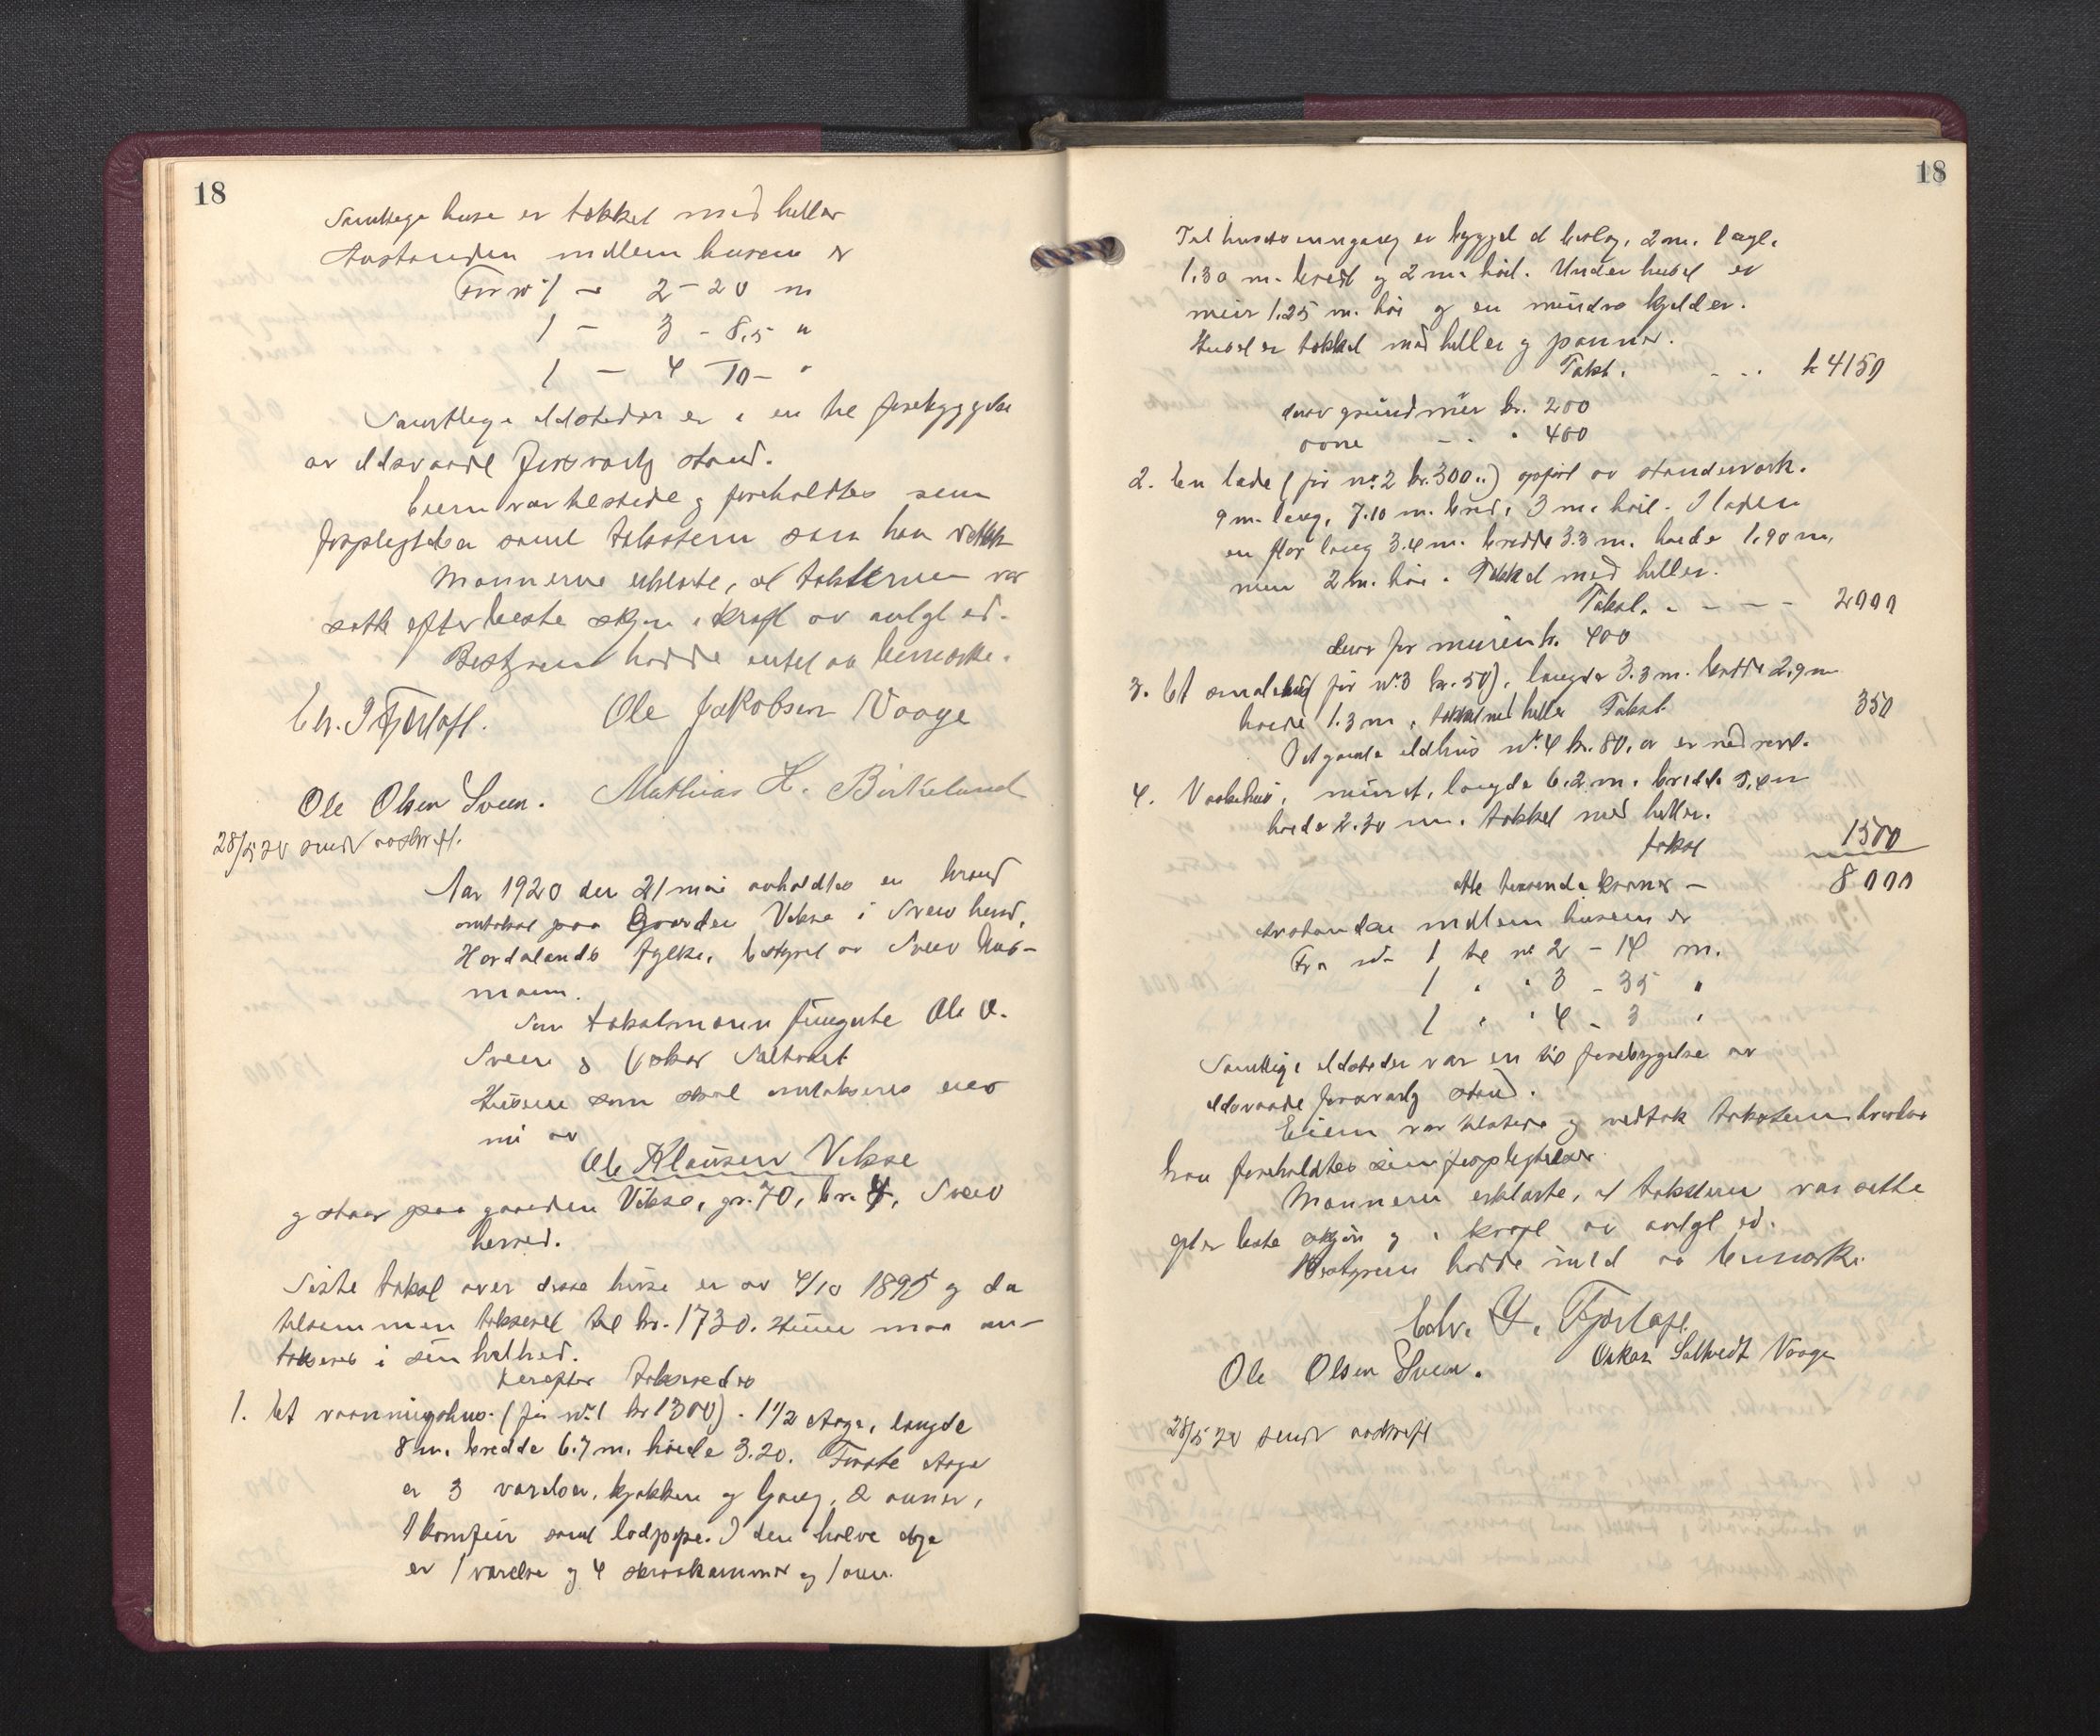 18
Samtlege huse er tækket med heller
Avstanden mellem husene er
Fra no 1 - 2 - 20 m
1 - 3 - 8,5 "
1 - 4 - 10 - "
Samtlege ildsteder er i en til forebyggelse
av ildsvaade forsvarlig stand.
Eieren var tilstede og foreholdtes sine
forpligtelser samt taksten som han vedtok
Mænnerne erklærte, at taksterne var
satt efter beste skjøn i kraft av avlagt ed.
Bestyreren hadde intet at bemerke.
Ole Jakobsen Vaage
Ole Olsen Sveen. Mathias H. Birkeland
28/5 20 sendt avskrift.
Aar 1920 den 21 mai avholdtes en brand
omtakst paa Gaarden Vikse i Sveio herred,
Hordalands fylke, bestyret av Sveio lens-
mann.
Som takstmænn fungerte Ole O.
Sveen og Oskar Saltvedt
Husene som skal omtakseres eies
nu av
Ole Klausen Vikse
og staar paa gaarden Vikse, gr. 70, br. 4, Sveio
herred.
Siste takst over disse huse er av 4/10 1895 og da
tilsammen taksert til kr. 1730. Husene maa om-
takseres i sin helhed.
Herefter taksertes
1. Et vaaningshus (før no 1 kr 1300). 1 1/2 etage, længde
8 m. bredde 6.7 m. høide 3.20. Første etage
er 3 værelser, kjøkken og Gang, 2 ovner,
1 komfur samt lodpipe. I den halve etage
er 1 værelse og 4 skraakammer og 1 ovn.
18
Til husets inngang er bygget et bislag, 2 m. langt,
1.30 m. bredt og 2 m. høit. Under huset er
mur 1.25 m. høi og en mindre kjelder.
Huset er tækket med heller og panner.
Takst. - - - kr 4150
derav grundmur kr. 200
ovne - - " 400
2. En lade (før no 2 kr. 300..) opført av stenderverk.
9 m. lang, 7.10 m. bred, 3 m. høit. I laden
en flor lang 3.4 m. bredde 3.3 m. høide 1.90 m,
mur 2 m. høi. Tækket med heller.
Takst. - - - - 2000
derav for muren kr. 400
3. Et smalehus (før no 3 kr. 50), længde 3.3 m. bredde 2.9 m
høide 1.3 m, tækket med heller Takst. 350
Det gamle eldhus no 4 kr. 80, er nedrevet.
4. Vaskehus, muret, længde 6.2 m. bredde 5,4 m
høide 2.20 m. tækket med heller.
takst 1500
otte tusende kroner - 8000
Avstanden mellem husene er
Fra no 1 til no 2 - 14 m.
1 " " 3 - 35 "
1 " " 4 - 3 "
Samtlige ildsteder var i en til forebygelse av
ildsvaade forsvarlig stand.
Eieren var tilstede og vedtok taksten hvorhos
han foreholdtes sine forpligtelser.
Mænnerne erklærte, at taksterne var satte
efter beste skjøn og i kraft av avlagt ed.
Bestyreren hadde intet at bemerke.
Ole Olsen Sveen. Oskar Saltvedt Vaage
28/5 20 sendt avskrift